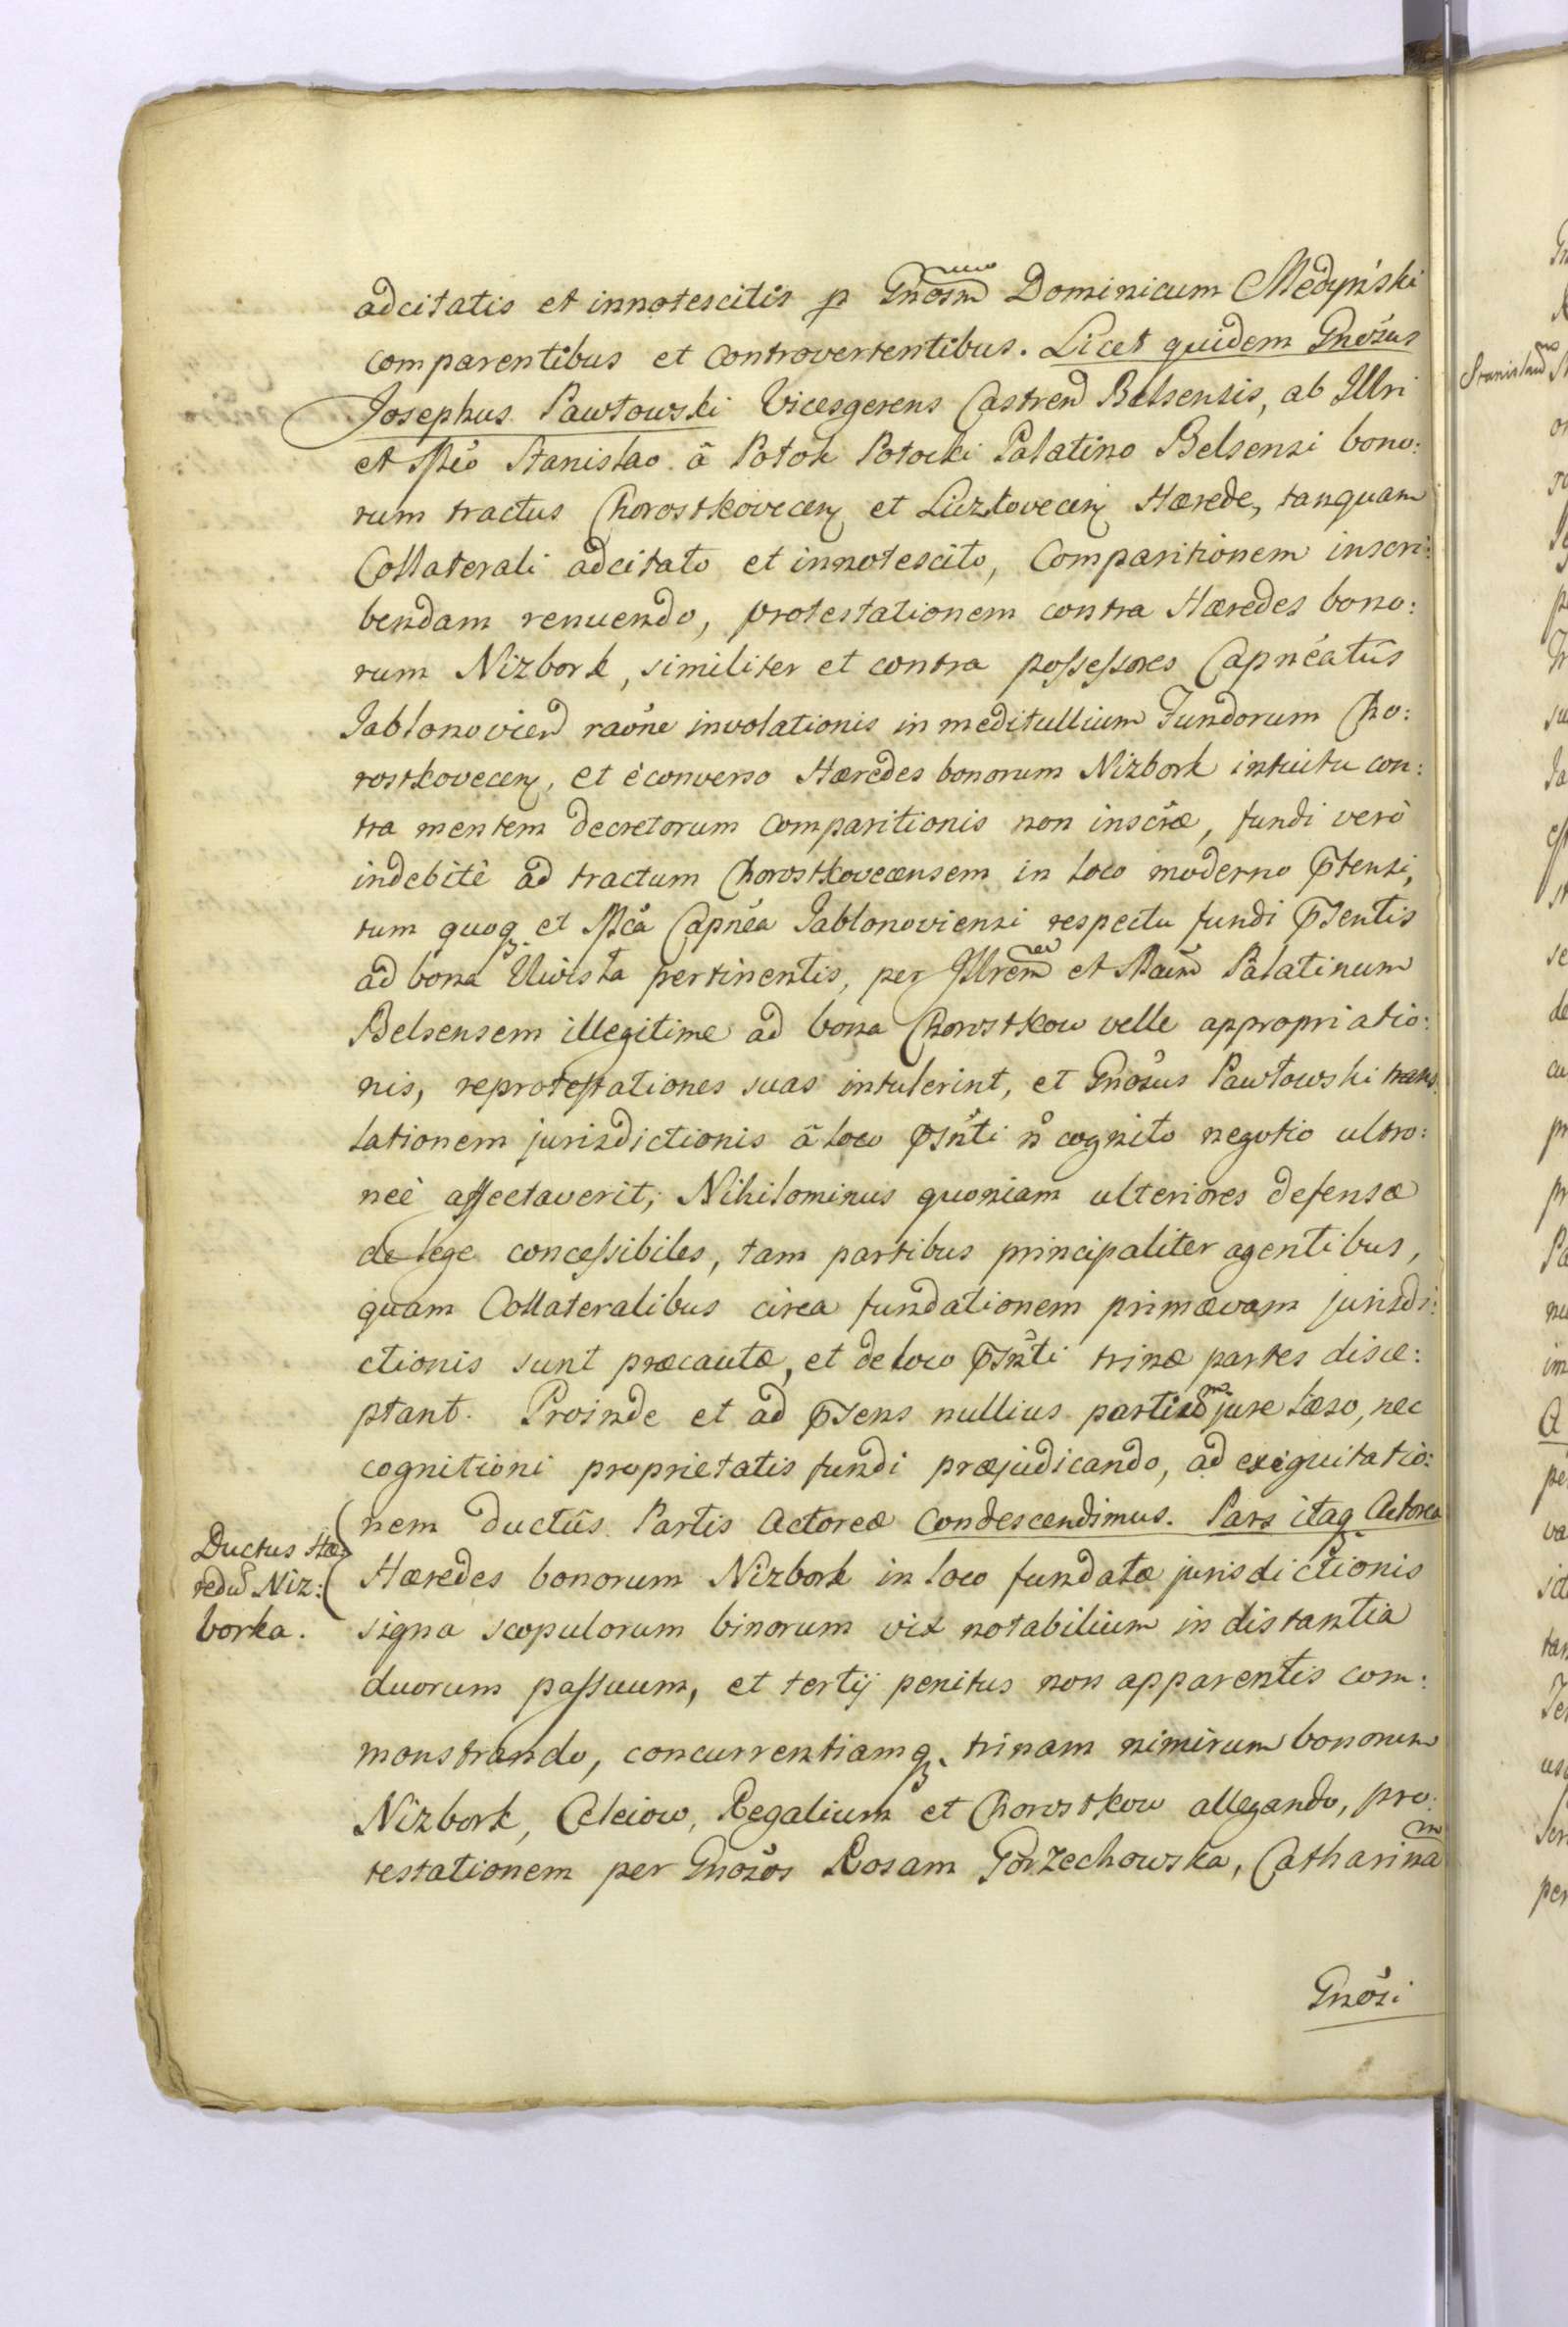 adcitatis et innotescitis p Gnosm Dominicum Medyński
comparentibus et controvertentibus. Licet quidem Gnosus
Josephus Pawłowski Vicesgerens Castren Belsensis, ab Illri
et Mco Stanislao â Potok Potocki Palatino Belsensi bono:
rum tractus Chorostkovecen et Liczkovecen Hærede, tanquam
Collaterali adcitato et innotescito, Comparitionem inscri:
bendam renuendo, protestationem contra Hæredes bono:
rum Nizbork, similiter et contra possessores Capneatûs
Jablonovien raone involationis in meditullium Fundorum Cho:
rostkovecen, et è converso Hæredes bonorum Nizbork intuitu con:
tra mentem decretorum comparitionis non inscræ, fundi verò
indebitè ad tractum Chorostkovecensem in loco moderno ptensi,
tum quoq et Mca Capnea Jablonoviensi respectu fundi psentis
ad bona Uwisła pertinentis, per Illrem et Mcum Palatinum
Belsensem illegitime ad bona Chorostkow velle appropriatio:
nis, reprotestationes suas intulerint, et Gnosus Pawłowski trans
lationem jurisdictionis â loco psnti n cognito negotio ultro:
neè affectaverit; Nihilominus quoniam ulteriores defensæ
de lege concessibiles, tam partibus principaliter agentibus,
quam Collateralibus circa fundationem primævam jurisdi:
ctionis sunt præcautæ, et de loco psnti trinæ partes disce:
ptant. Proinde et ad psens nullius partium jure læso, nec
cognitioni proprietatis fundi præjudicando, ad exequitatio:
nem ductûs Partis Actoreæ condescendimus. Pars itaq Actorea
Ductus Hæ
redu Niz:
borka.
Hæredes bonorum Nizbork in loco fundatæ jurisdictionis
signa scopulorum binorum vix notabilium in distantia
duorum passuum, et tertij penitus non apparentis com:
monstrando, concurrentiamq trinam nimirum bonorum
Nizbork, Celeiow, Regalium et Chorostkow allegando, pro:
testationem per Gnosos Rosam Gorzechowska, Catharina
Gnosi
Stanislaum